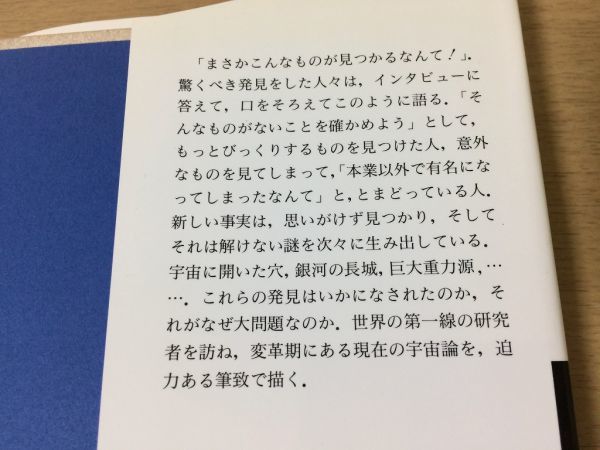 「まさかこんなものが見つかるなんて！」．
驚くべき発見をした人々は，インタビューに
答えて，口をそろえてこのように語る．「そ
んなものがないことを確かめよう」として，
もっとびっくりするものを見つけた人，意外
なものを見てしまって，「本業以外で有名にな
ってしまったなんて」と，とまどっている人．
新しい事実は，思いがけず見つかり，そして
それは解けない謎を次々に生み出している．
宇宙に開いた穴，銀河の長城，巨大重力源，…
…．これらの発見はいかになされたのか，そ
れがなぜ大問題なのか．世界の第一線の研究
者を訪ね，変革期にある現在の宇宙論を，迫
力ある筆致で描く．